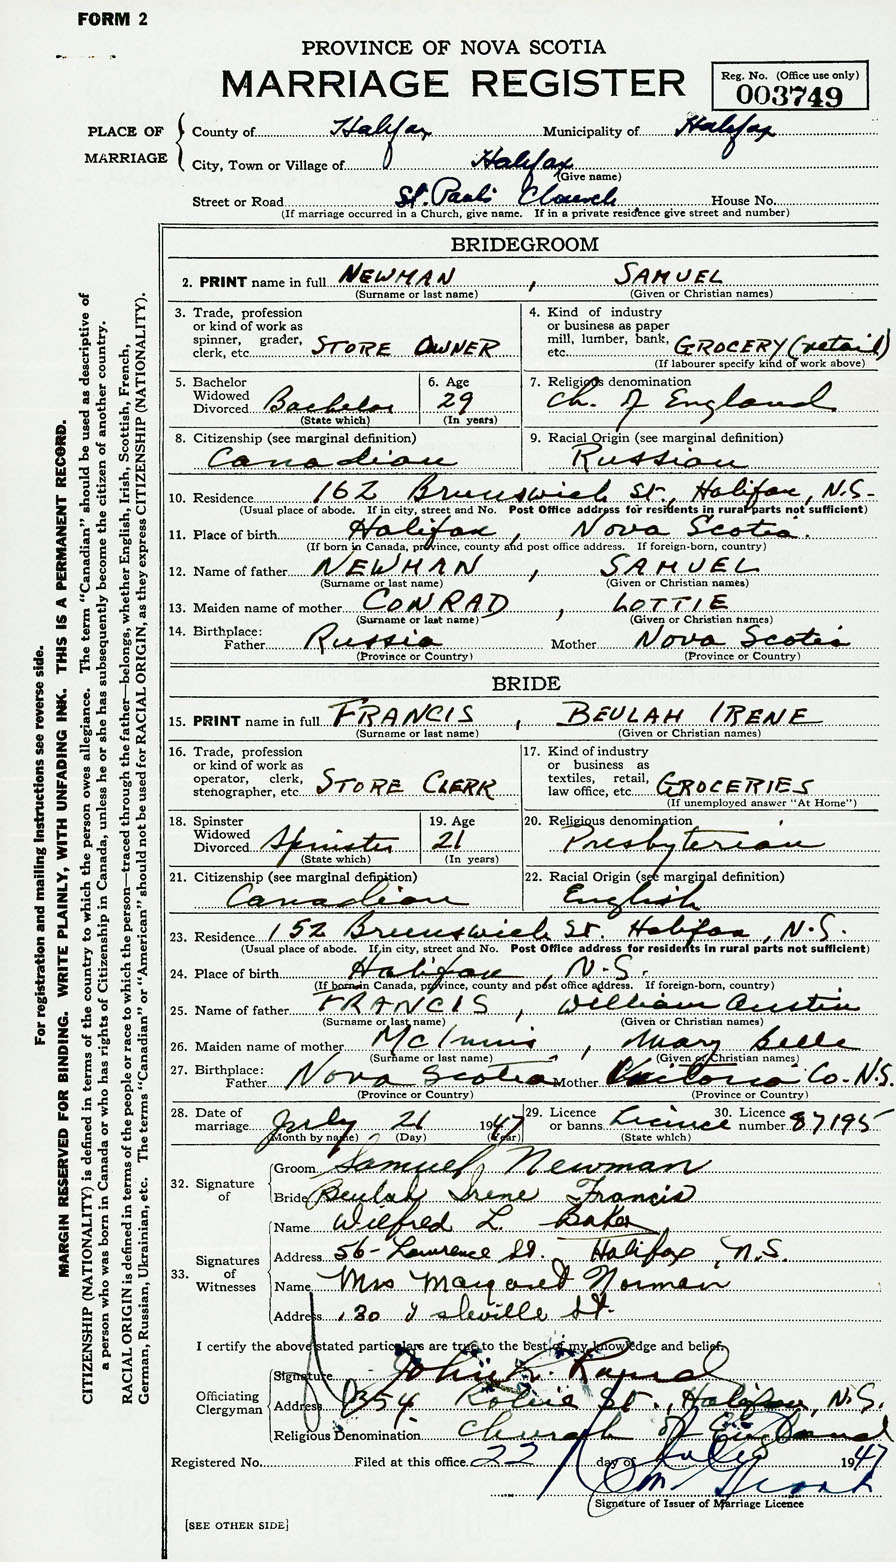 FORM 2
PROVINCE OF NOVA SCOTIA
MARRIAGE REGISTER
Reg. No. (Office use only)
003749
PLACE OF MARRIAGE
County of Halifax Municipality of Halifax
City, Town or Village of Halifax
(Give name)
Street or Road St. Paul's Church House No.
(If marriage occurred in a Church, give name. If in a private residence give street and number)
BRIDEGROOM
2. PRINT name in full NEWMAN , SAMUEL
(Surname or last name) (Given or Christian names)
3. Trade, profession or kind of work as spinner, grader, clerk, etc. STORE OWNER
4. Kind of industry or business as paper mill, lumber, bank, etc. GROCERY (retail)
(If labourer specify kind of work above)
5. Bachelor Widowed Divorced Bachelor
(State which)
6. Age 29
(In years)
7. Religious denomination Ch. of England
8. Citizenship (see marginal definition) Canadian
9. Racial Origin (see marginal definition) Russian
10. Residence 162 Brunswick St., Halifax, N.S.
(Usual place of abode. If in city, street and No. Post Office address for residents in rural parts not sufficient)
11. Place of birth Halifax, Nova Scotia.
(If born in Canada, province, county and post office address. If foreign-born, country)
12. Name of father NEWMAN , SAMUEL
(Surname or last name) (Given or Christian names)
13. Maiden name of mother CONRAD , LOTTIE
(Surname or last name) (Given or Christian names)
14. Birthplace: Father Russia Mother Nova Scotia
(Province or Country) (Province or Country)
BRIDE
15. PRINT name in full FRANCIS , BEULAH IRENE
(Surname or last name) (Given or Christian names)
16. Trade, profession or kind of work as operator, clerk, stenographer, etc. STORE CLERK
17. Kind of industry or business as textiles, retail, law office, etc. GROCERIES
(If unemployed answer "At Home")
18. Spinster Widowed Divorced Spinster
(State which)
19. Age 21
(In years)
20. Religious denomination Presbyterian
21. Citizenship (see marginal definition) Canadian
22. Racial Origin (see marginal definition) English
23. Residence 152 Brunswick St. Halifax, N.S.
(Usual place of abode. If in city, street and No. Post Office address for residents in rural parts not sufficient)
24. Place of birth Halifax, N.S.
(If born in Canada, province, county and post office address. If foreign-born, country)
25. Name of father FRANCIS , William Austin
(Surname or last name) (Given or Christian names)
26. Maiden name of mother McInnis , Mary Belle
(Surname or last name) (Given or Christian names)
27. Birthplace: Father Nova Scotia Mother Victoria Co. N.S.
(Province or Country) (Province or Country)
28. Date of marriage July 21 1947
(Month by name) (Day) (Year)
29. Licence or banns Licence
(State which)
30. Licence number 87195
32. Signature of
Groom Samuel Newman
Bride Beulah Irene Francis
33. Signatures of Witnesses
Name Wilfred L. Baker
Address 56 Lawrence St. Halifax, N.S.
Name Mrs Margaret Norman
Address 130 St.
I certify the above stated particulars are true to the best of my knowledge and belief.
Officiating Clergyman
Signature
Address 354 Robie St., Halifax, N.S.
Religious Denomination Church of England
Registered No. Filed at this office 22 day of July 1947
Signature of Issuer of Marriage Licence
[SEE OTHER SIDE]
For registration and mailing instructions see reverse side.
MARGIN RESERVED FOR BINDING. WRITE PLAINLY, WITH UNFADING INK. THIS IS A PERMANENT RECORD.
CITIZENSHIP (NATIONALITY) is defined in terms of the country to which the person owes allegiance. The term "Canadian" should be used as descriptive of
a person who was born in Canada or who has rights of Citizenship in Canada, unless he or she has subsequently become the citizen of another country.
RACIAL ORIGIN is defined in terms of the people or race to which the person—traced through the father—belongs, whether English, Irish, Scottish, French,
German, Russian, Ukrainian, etc. The terms "Canadian" or "American" should not be used for RACIAL ORIGIN, as they express CITIZENSHIP (NATIONALITY).